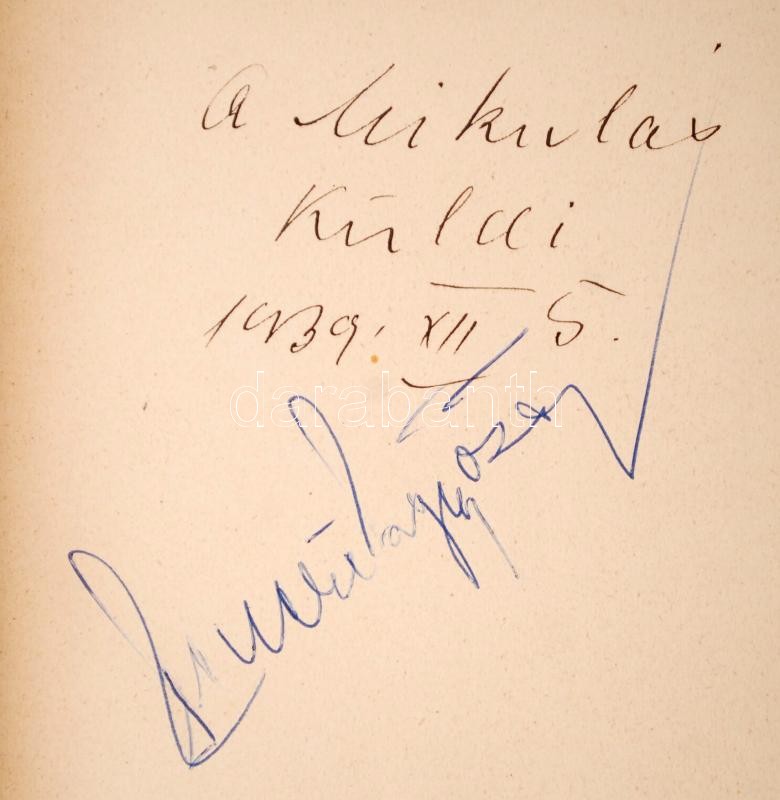 A Mikulás
Küldi
1939. XII 5.
darabanth